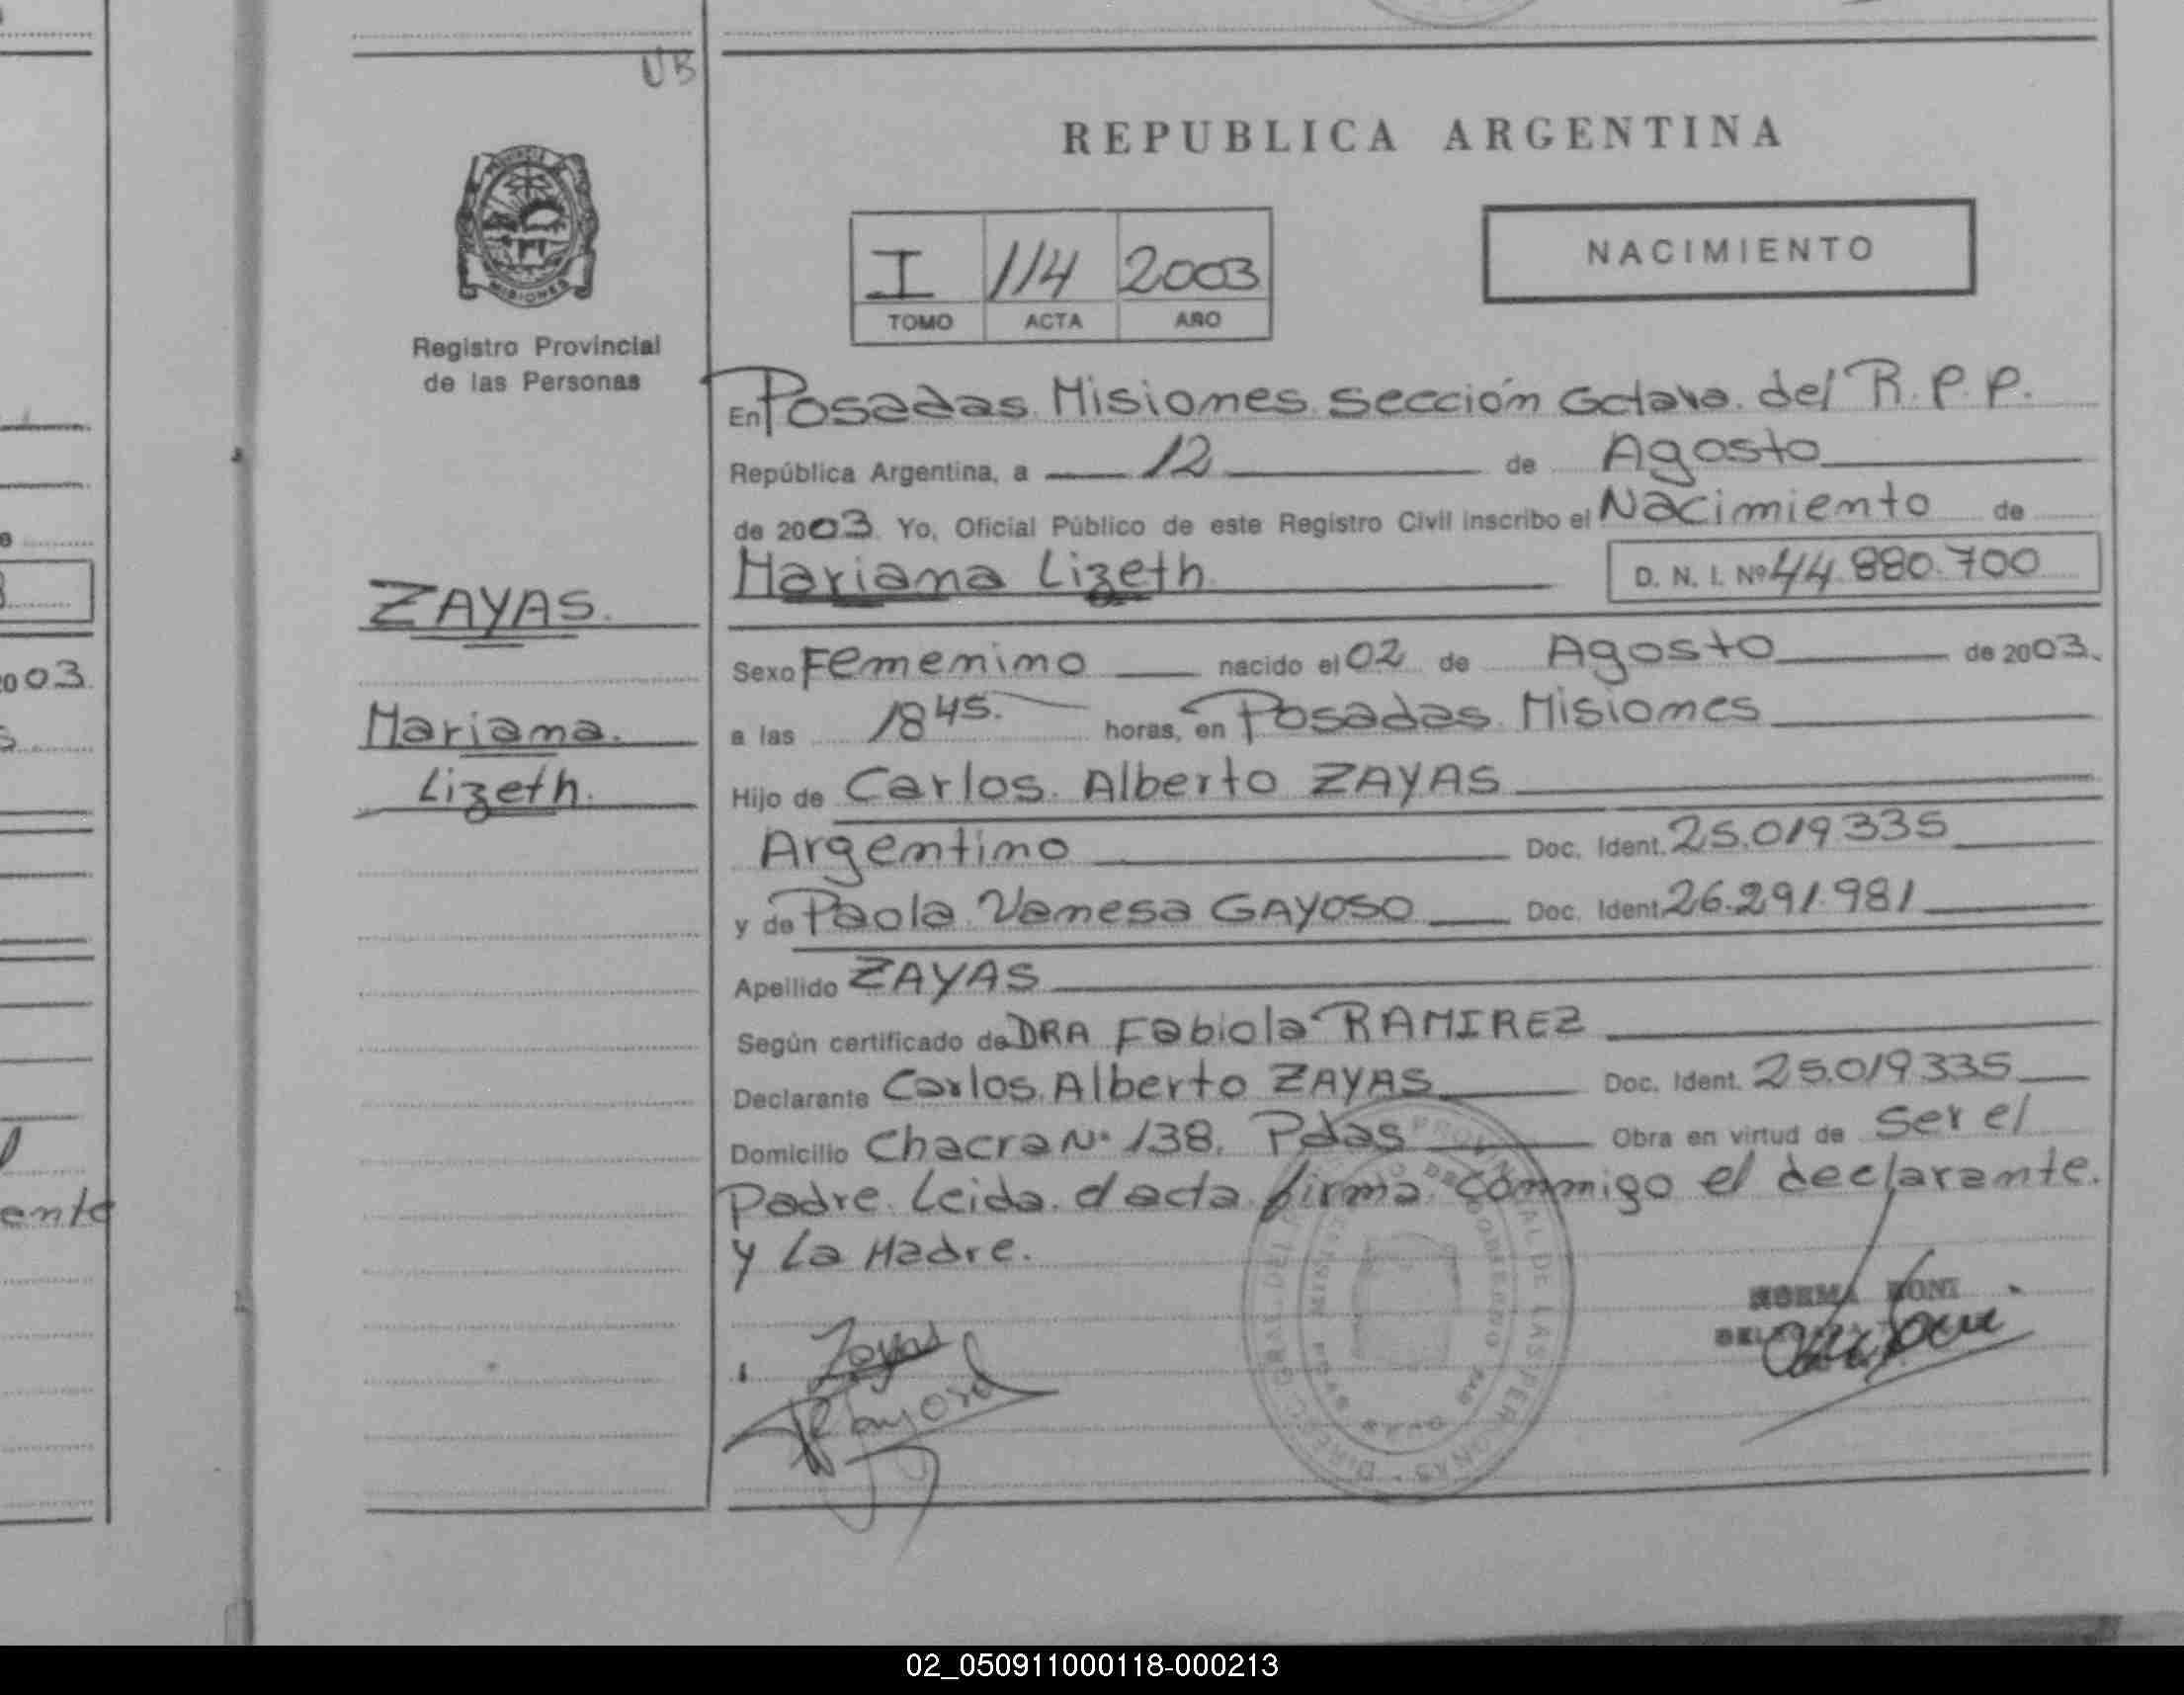 UB
REPUBLICA ARGENTINA
PROVINCIA
MISIONES
Registro Provincial
de las Personas
I 114 2003
TOMO ACTA AÑO
NACIMIENTO
En Posadas Misiones Sección Octava del R.P.P.
República Argentina, a 12 de Agosto
de 2003 Yo, Oficial Público de este Registro Civil inscribo el Nacimiento de
Mariana Lizeth D. N. I. Nº 44.880.700
ZAYAS.
Mariana.
Lizeth.
Sexo Femenino nacido el 02 de Agosto de 2003.
a las 18 45. horas, en Posadas Misiones
Hijo de Carlos Alberto ZAYAS
Argentino Doc. Ident. 25.019.335
y de Paola Vanesa GAYOSO Doc. Ident. 26.291.981
Apellido ZAYAS
Según certificado de DRA Fabiola RAMIREZ
Declarante Carlos Alberto ZAYAS Doc. Ident. 25.019.335
Domicilio Chacra Nº 138. Pdas Obra en virtud de ser el
Padre. Leida. el acta firma conmigo el declarante.
y La Madre.
NORMA BONI
Zayas
Gayoso
003
ente
02_050911000118-000213